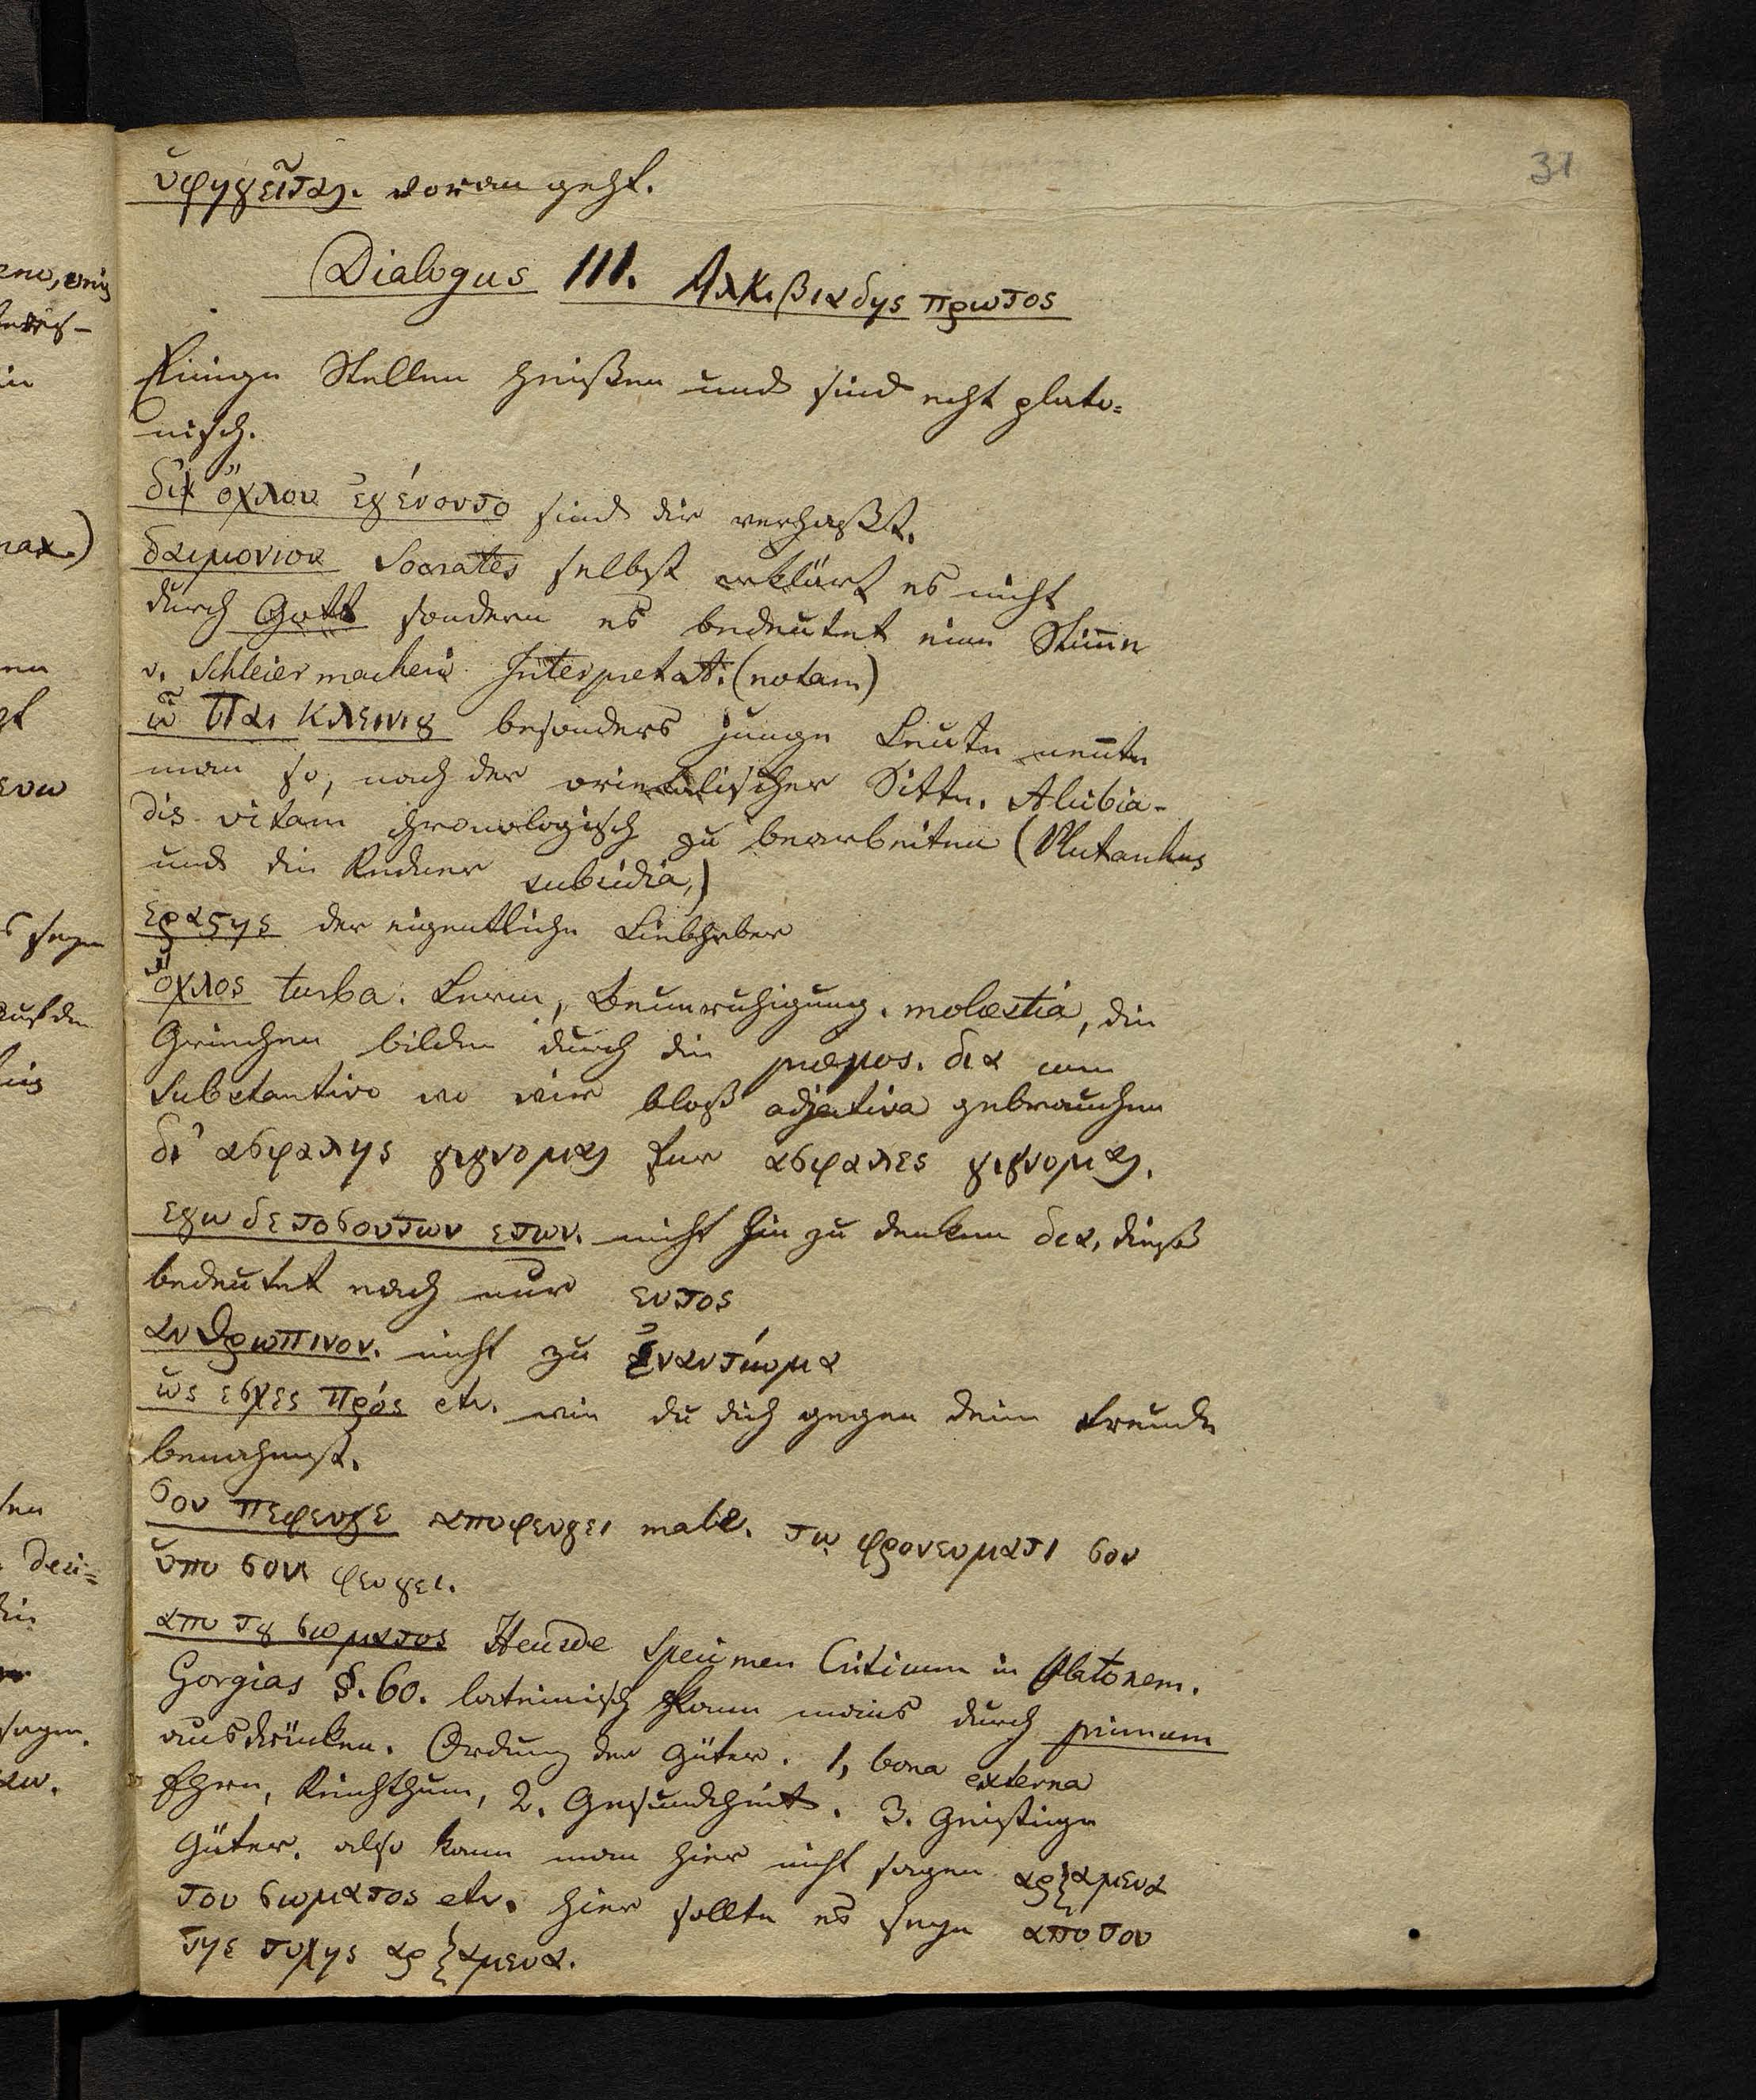 31
ὑφηγεῖται. voran geht.
Dialogus III. Αλκιβιαδης πρωτος
Einige Stellen heißen und sind echt plato=
nisch.
δἰ ὄχλου ἐγένοντο sind dir verhaßt.
δαιμονιον Socrates selbst erklärt es nicht
durch Gott sondern es bedeutet eine Stim̄e
v. Schleiermachers Interpretat. (notam)
ὦ Παι Κλεινιȣ besonders junge Leute nen̄te
man so, nach der orientalischer Sitte. Alcibia-
dis vitam chronologisch zu bearbeiten (Plutarchus
und die Redner subsidia,)
εραστης der eigentliche Liebhaber
ὄχλος turba. Lerm, Beunruhigung. molestia, die
Griechen bilden durch die præpos. δια cum
Substantivo wo wir bloß adjectiva gebrauchen
δι' ασφαλης γιγνομαι fur ασφαλες γιγνομαι.
εγω δε τοσουτων ετων. nicht hin zu denken δια, dieß
bedeutet nach nur εντος
ανθρωπινον. nicht zu ἐναντίωμα
ὡς εσχες πρός etc. wie du dich gegen deine Freunde
benahmst.
σου πεφευγε αποφευγει male. τῳ φρονευματι σου
ὑπο σου φευγει.
απο τȣ σωματος Heusde Specimen Criticum in Platonem.
Gorgias §. 60. lateinisch kann mans durch primum
ausdrücken. Ordung der Güter. 1, bona externa
Ehre, Reichthum, 2. Gesundheit. 3. Geistige
Güter. also kann man hier nicht sagen αρξαμενα
του σωματος etc. hier sollte es seyn απο του
της τυχης αρξαμενα.